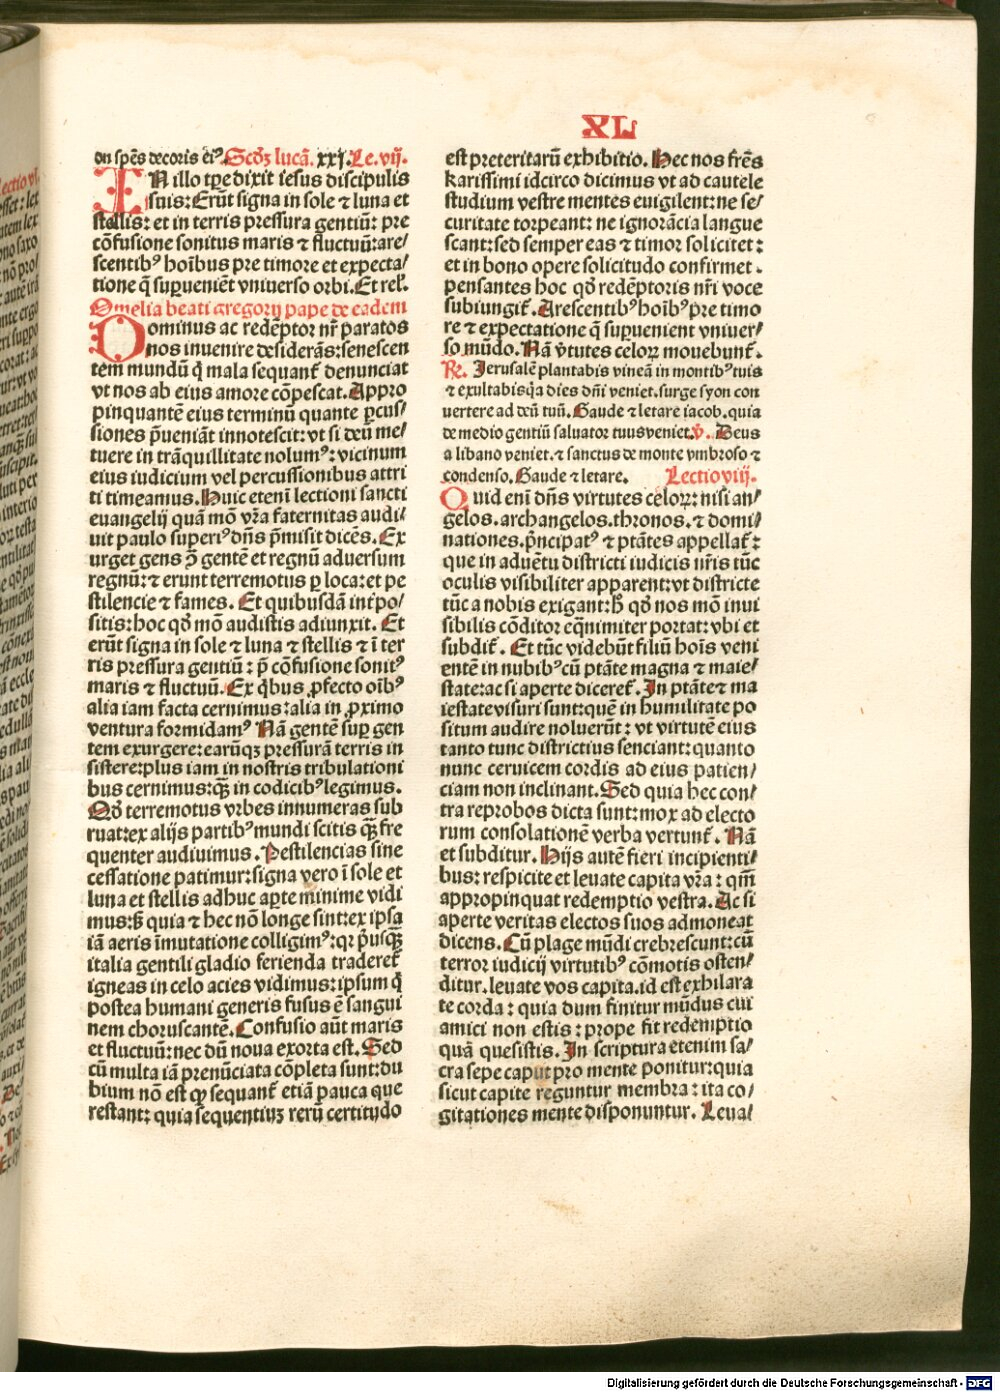 XL
on spēs decoris ei⁹. Scd̄ꝫ lucā. xxj. Le. vij.
IN illo tp̄e dixit iesus discipulis
suis: Erūt signa in sole ⁊ luna et
stellis: et in terris pressura gentiū: pre
cōfusione sonitus maris ⁊ fluctuū: are/
scentib⁹ hoībus pre timore et expecta/
tione q̄ suꝑueniēt vniuerso orbi. Et rel̄.
Omelia beati gregorij pape de eadem
Dominus ac redēptor nr̄ paratos
nos inuenire desiderās: senescen
tem mundū q̄ mala sequant̄ denunciat
vt nos ab eius amore cōpescat. Appro
pinquantē eius terminū quante ꝑcus/
siones p̄ueniāt innotescit: vt si deū me/
tuere in trāquillitate nolum⁹: vicinum
eius iudicium vel percussionibus attri
ti timeamus. Huic etenī lectioni sancti
euangelij quā mō vr̄a faternitas audi/
uit paulo superi⁹ dn̄s p̄misit dicēs. Ex
urget gens ꝯ̄ gentē et regnū aduersum
regnū: ⁊ erunt terremotus ꝑ loca: et pe
stilencie ⁊ fames. Et quibusdā int̄po/
sitis: hoc qd̄ mō audistis adiunxit. Et
erūt signa in sole ⁊ luna ⁊ stellis ⁊ ī ter
ris pressura gentiū: p̄ cōfusione sonit⁹
maris ⁊ fluctuū. Ex q̄bus ꝓfecto oīb⁹
alia iam facta cernimus: alia in ꝓximo
ventura formidam⁹ Nā gentē suꝑ gen
tem exurgere: earūqꝫ pressurā terris in
sistere: plus iam in nostris tribulationi
bus cernimus: qꝫ̄ in codicib⁹ legimus.
Qd̄ terremotus vrbes innumeras sub
ruat: ex alijs partib⁹ mundi scitis qꝫ̄ fre
quenter audiuimus. Pestilencias sine
cessatione patimur: signa vero ī sole et
luna et stellis adhuc aꝑte minime vidi
mus: ꝫ quia ⁊ hec nō longe sint: ex ipsa
iā aeris īmutatione colligim⁹: qꝛ p̄usqꝫ̄
italia gentili gladio ferienda traderet̄
igneas in celo acies vidimus: ipsum q̄
postea humani generis fusus ē sangui
nem choruscantē. Confusio aūt maris
et fluctuū: nec dū noua exorta est. Sed
cū multa iā prenūciata cōpleta sunt: du
bium nō est qꝫ sequant̄ etiā pauca que
restant: quia sequentiuꝫ rerū certitudo
est preteritarū exhibitio. Hec nos frēs
karissimi idcirco dicimus vt ad cautele
studium vestre mentes euigilent: ne se/
curitate torpeant: ne ignorācia langue
scant: sed semper eas ⁊ timor solicitet:
et in bono opere solicitudo confirmet.
pensantes hoc qd̄ redēptoris nr̄i voce
subiungit̄. Arescentib⁹ hoīb⁹ pre timo
re ⁊ expectatione q̄ suꝑuenient vniuer/
so mūdo. Nā v̄tutes celoꝝ mouebunt̄.
℟. Jerusalē plantabis vineā in montib⁹ tuis
⁊ exultabis q̄a dies dn̄i veniet. surge syon con
uertere ad deū tuū. Gaude ⁊ letare iacob. quia
de medio gentiū saluator tuus veniet. v̄. Deus
a libano veniet. ⁊ sanctus de monte vmbroso ⁊
condenso. Gaude ⁊ letare. Lectio viij.
Quid enī dn̄s virtutes celoꝝ: nisi an/
gelos. archangelos. thronos. ⁊ domi/
nationes. p̄ncipat⁹ ⁊ ptātes appellat̄:
que in aduētu districti iudicis nr̄is tūc
oculis visibiliter apparent: vt districte
tūc a nobis exigant: h̄ qd̄ nos mō inui
sibilis cōditor eq̄nimiter portat: vbi et
subdit̄. Et tūc videbūt filiū hoīs veni
entē in nubib⁹ cū ptāte magna ⁊ maie/
state: ac si aperte diceret̄. In ptāte ⁊ ma
iestate visuri sunt: quē in humilitate po
situm audire noluerūt: vt virtutē eius
tanto tunc districtius senciant: quanto
nunc ceruicem cordis ad eius patien/
ciam non inclinant. Sed quia hec con/
tra reprobos dicta sunt: mox ad electo
rum consolationē verba vertunt̄. Nā
et subditur. Hijs autē fieri incipienti/
bus: respicite et leuate capita vr̄a: qm̄
appropinquat redemptio vestra. Ac si
aperte veritas electos suos admoneat
dicens. Cū plage mūdi crebrescunt: cū
terror iudicij virtutib⁹ cōmotis osten/
ditur. leuate vos capita. id est exhilara
te corda: quia dum finitur mūdus cui
amici non estis: prope fit redemptio
quā quesistis. In scriptura etenim sa/
cra sepe caput pro mente ponitur: quia
sicut capite reguntur membra: ita co/
gitationes mente disponuntur. Leua/
Digitalisierung gefördert durch die Deutsche Forschungsgemeinschaft - DFG